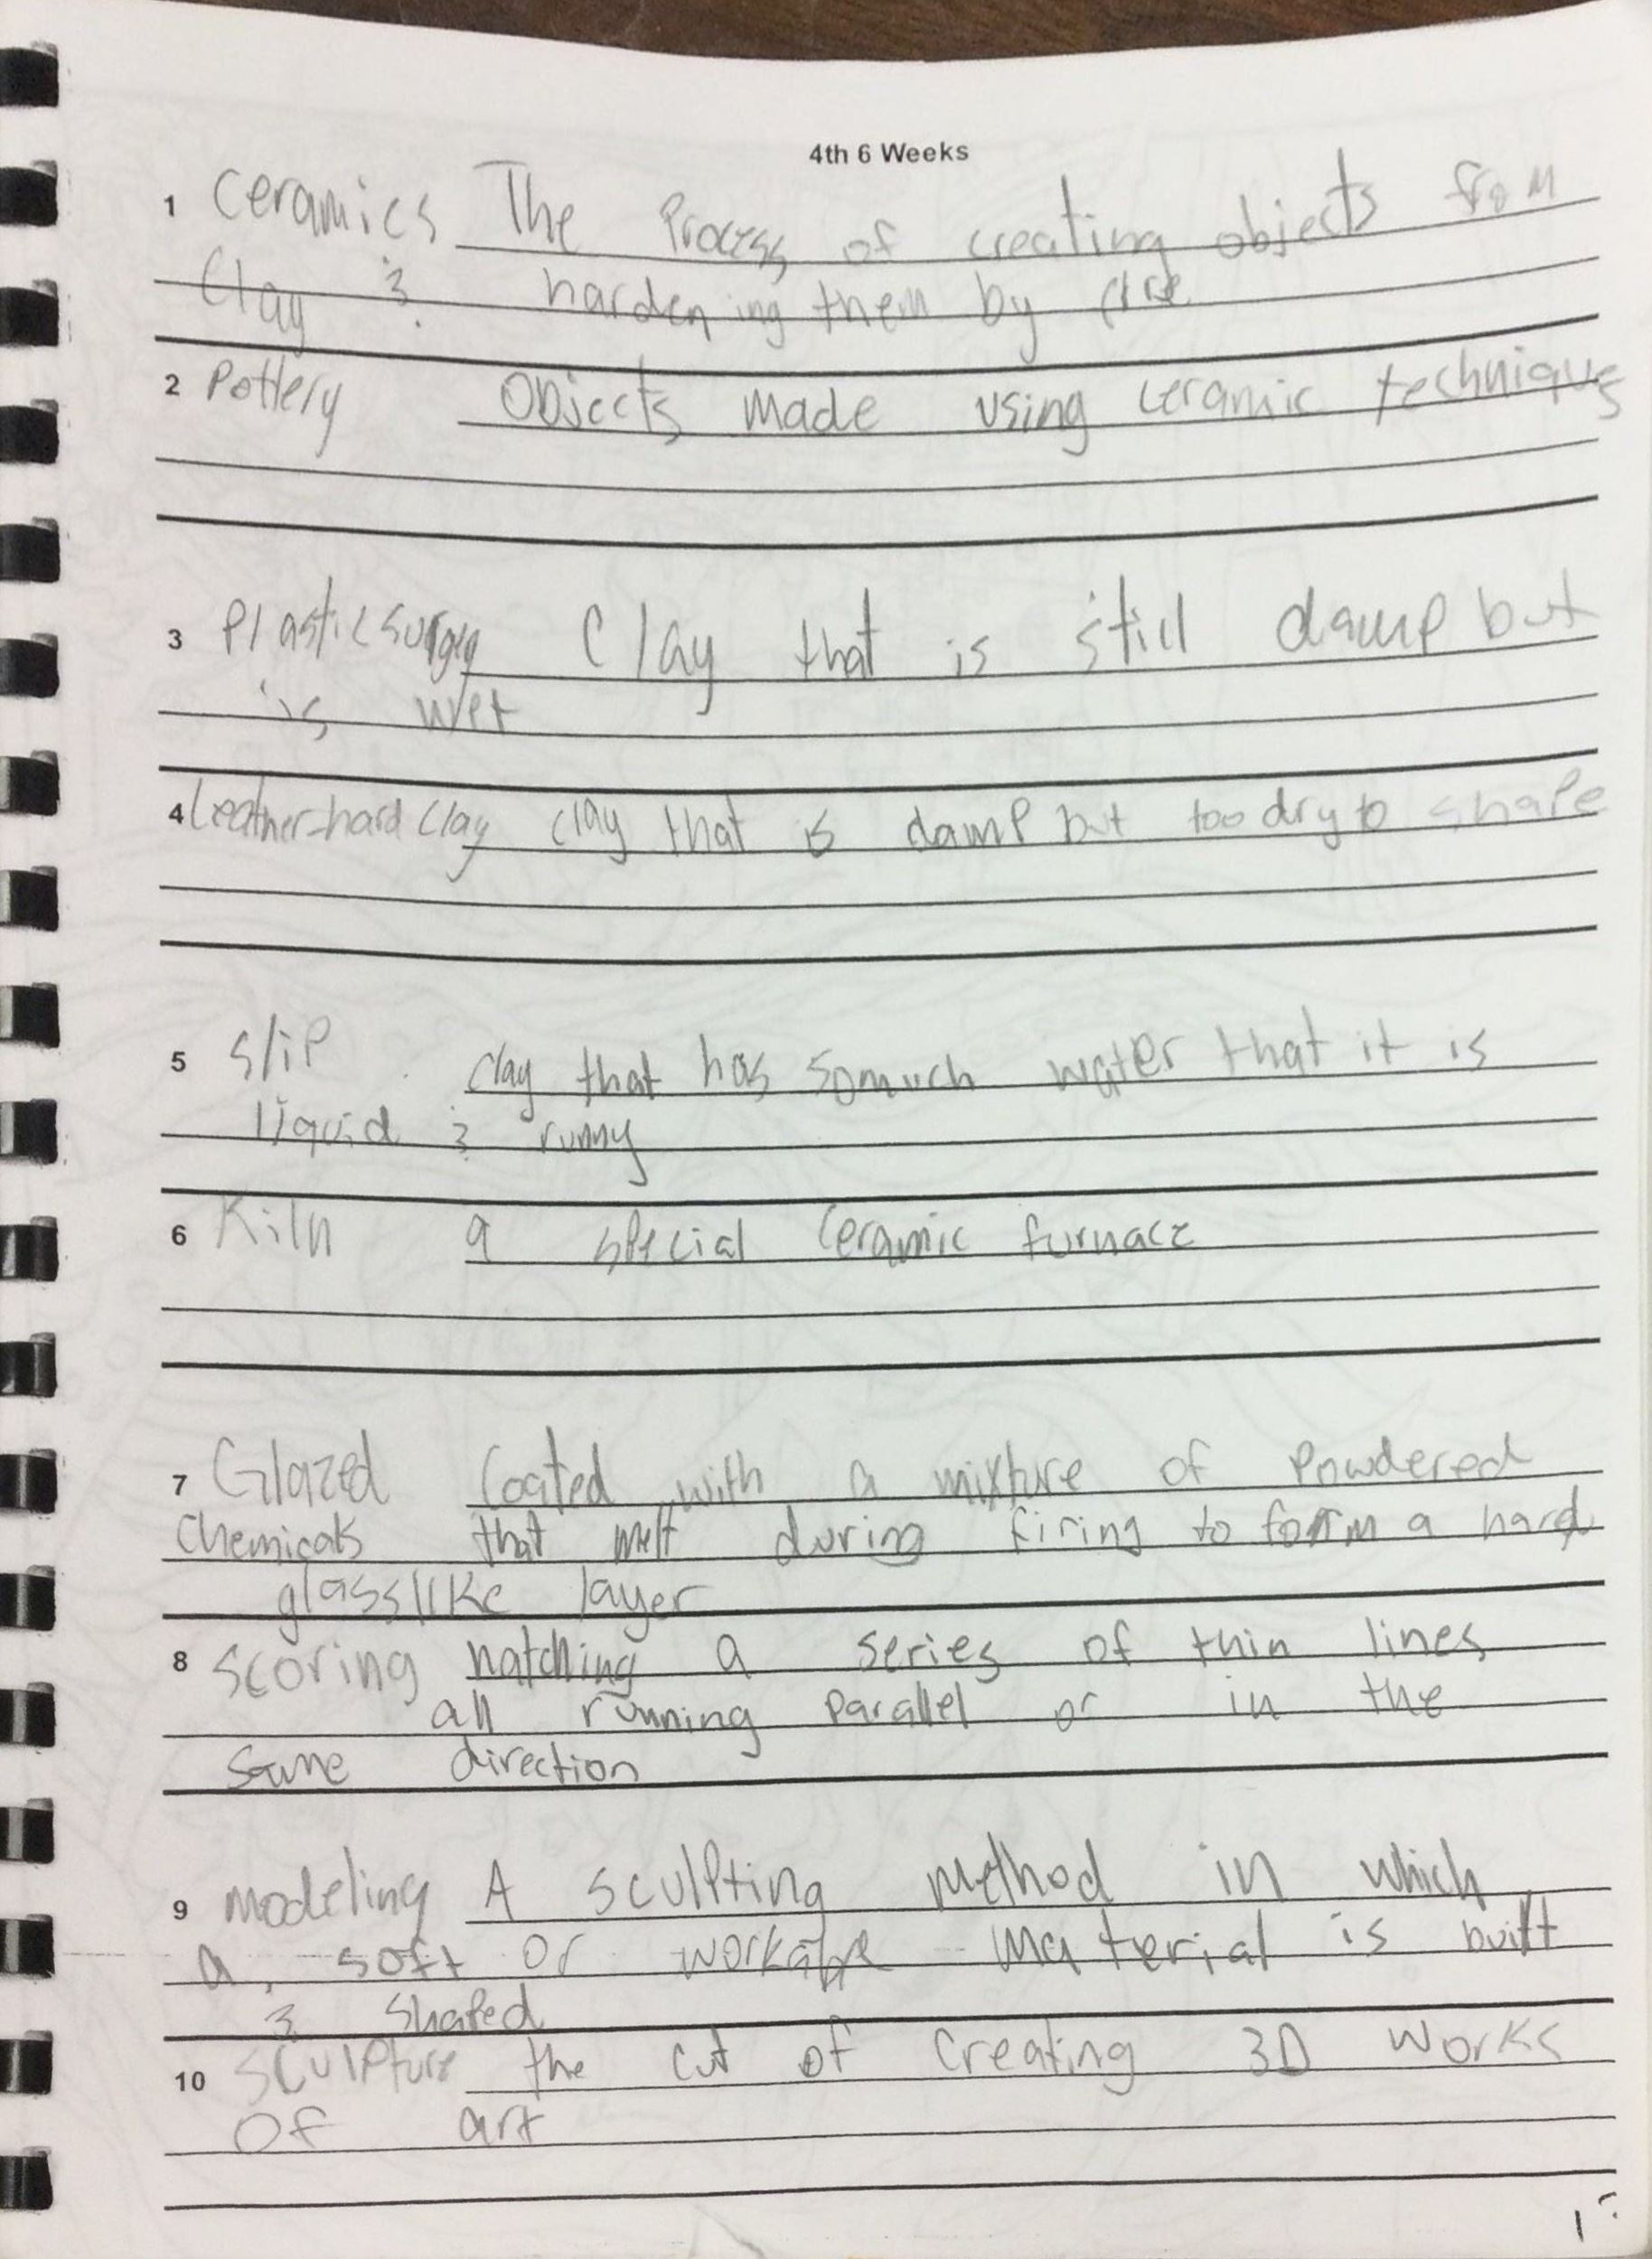 4th 6 Weeks
1 Ceramics The Process of creating objects from
Clay & hardening them by fire
2 Pottery Objects made using ceramic techniques
3 Plastic surgry Clay that is still damp but
is wet
4 Leather-hard clay clay that is damp but too dry to shape
5 Slip clay that has so much water that it is
liquid & runny
6 Kiln a special ceramic furnace
7 Glazed Coated with a mixture of Powdered
Chemicals that melt during firing to form a hard
glasslike layer
8 Scoring hatching a series of thin lines
all running parallel or in the
same direction
9 modeling A sculpting method in which
a soft or workable material is built
& shaped
10 Sculpture the cut of creating 3D works
of art